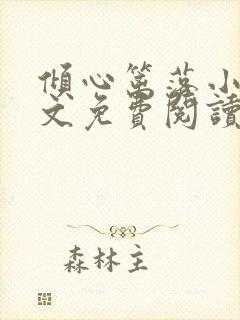 傾心篱落小
文免費閱讀
森林主